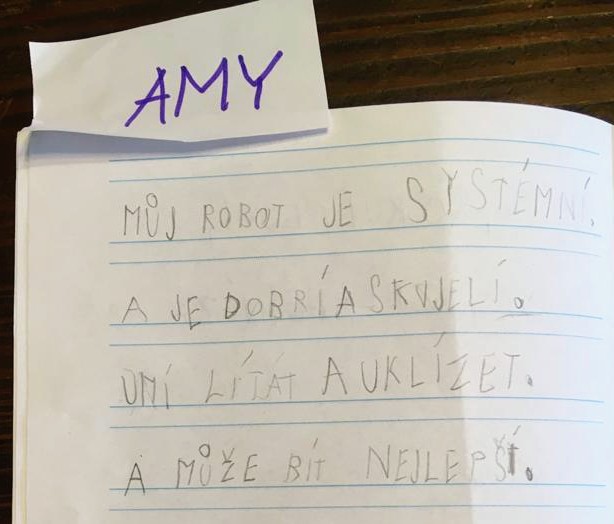 AMY
MŮJ ROBOT JE SYSTÉMNÍ.
A JE DOBRÍ A SKVJELÍ.
UMÍ LÍTÁT A UKLÍZET.
A MŮŽE BÍT NEJLEPŠÍ.